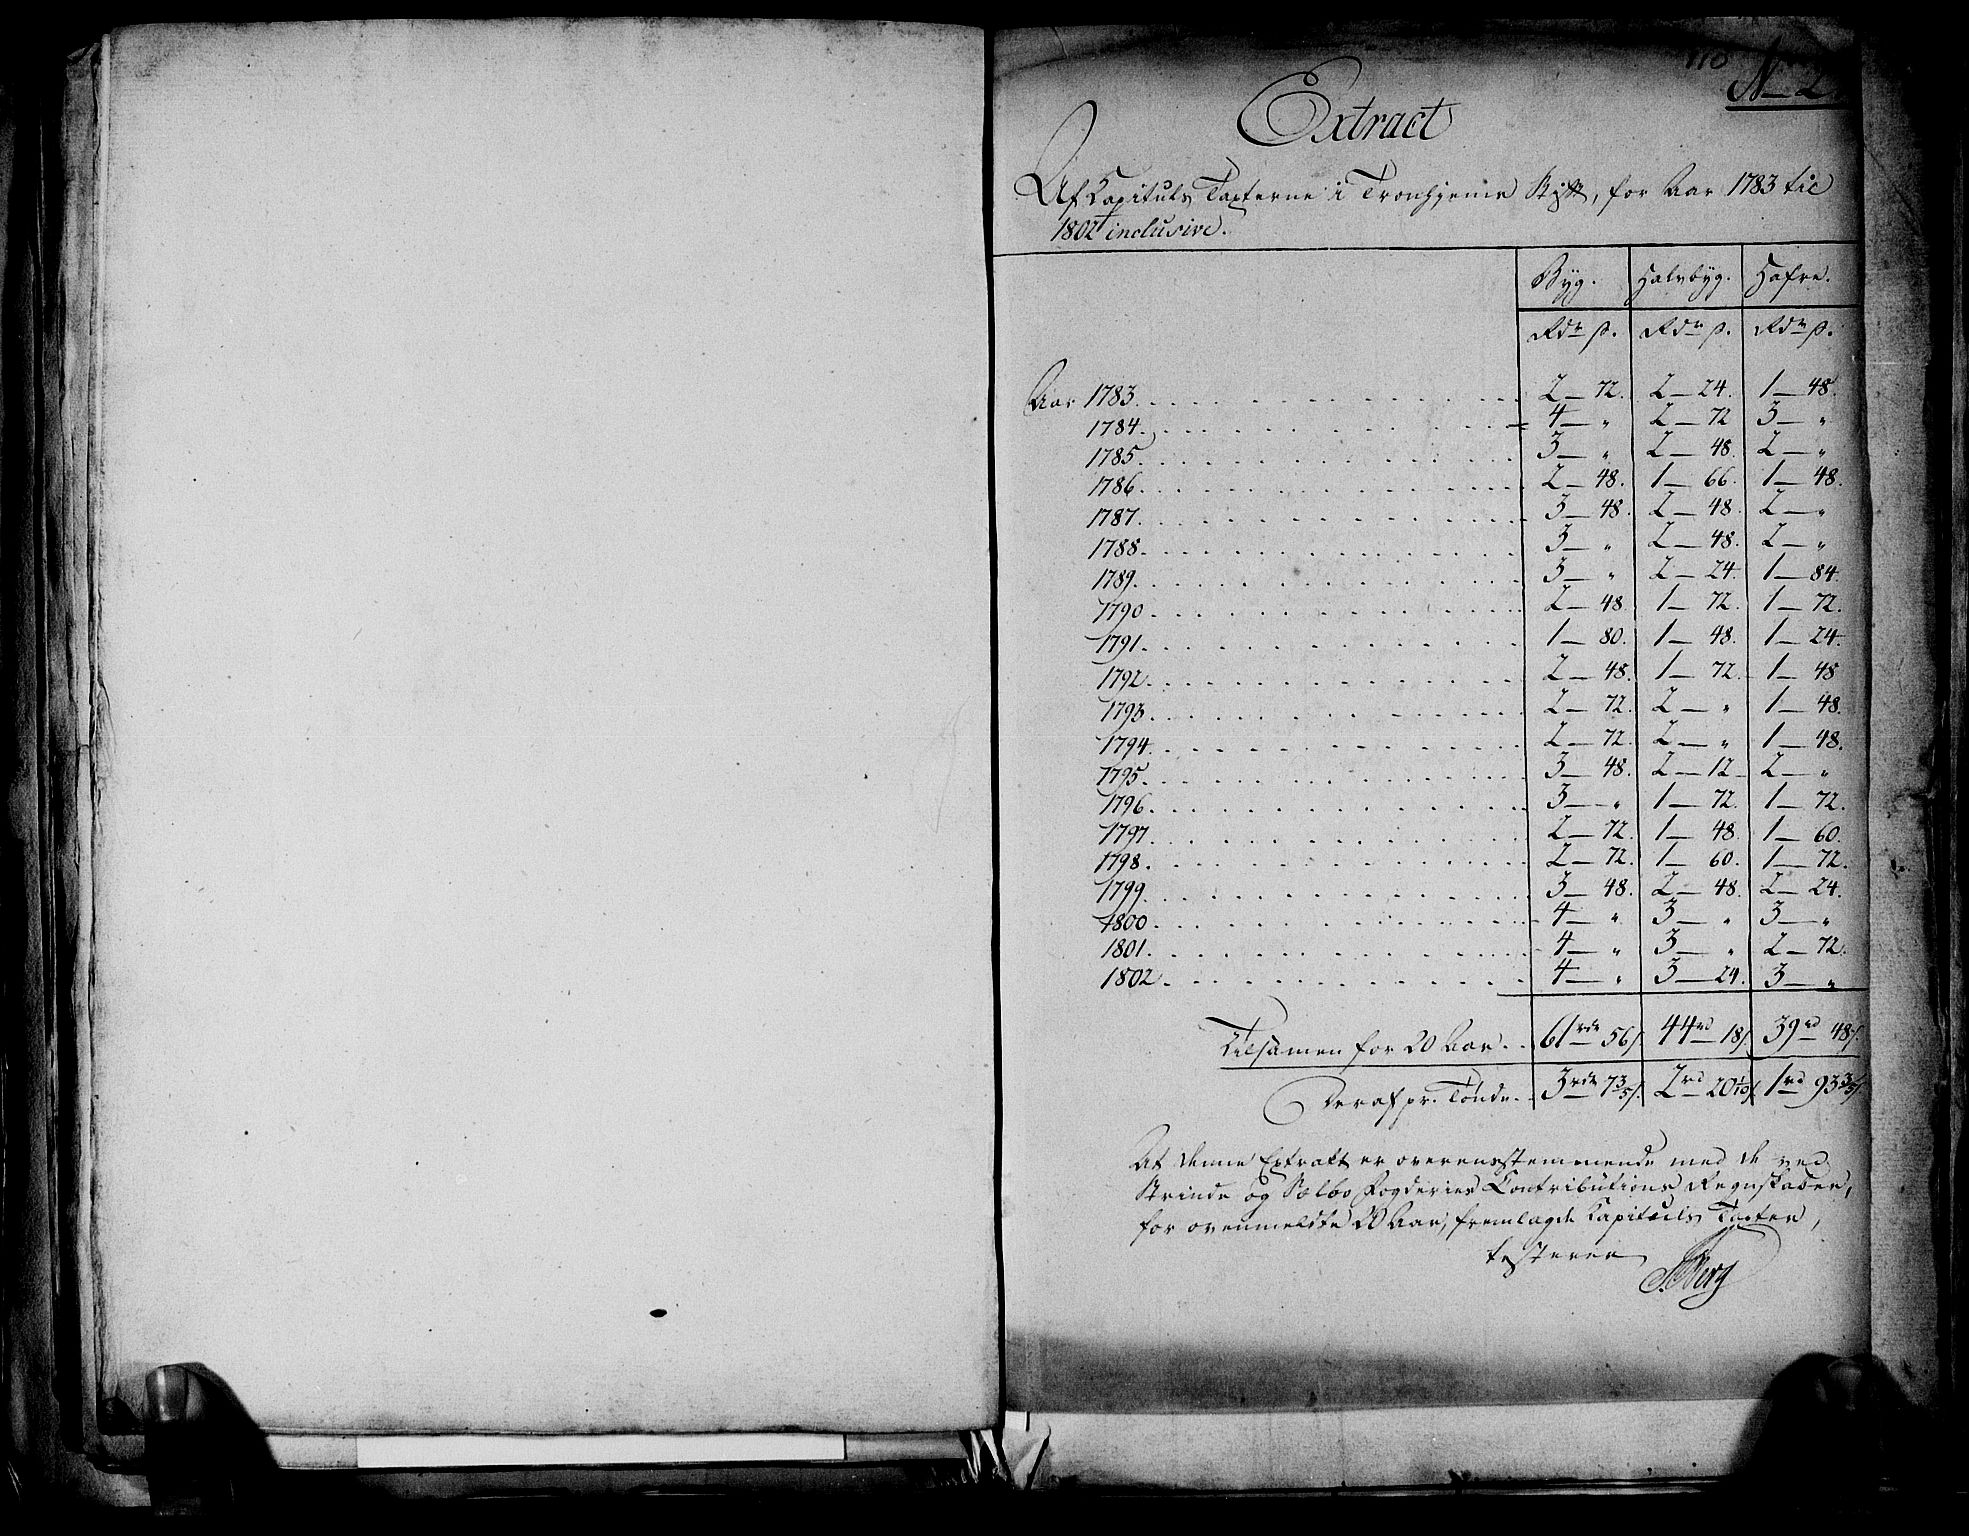 118
No 2.
Extract
Af Kapituls Taxterne i Tronhjems Stift, for Aar 1783 til
1802 inclusive.
Byg. Halvbyg. Hafre.
Rdr ß. Rdr ß. Rdr ß.
Aar 1783. 2 — 72. 2 — 24. 1 — 48.
1784. 4 — „ 2 — 72 3 — „
1785. 3 — „ 2 — 48. 2 — „
1786. 2 — 48. 1 — 66. 1 — 48.
1787. 3 — 48. 2 — 48. 2 — „
1788. 3 — „ 2 — 48. 2 — „
1789. 3 — „ 2 — 24. 1 — 84.
1790 2 — 48 1 — 72. 1 — 72.
1791. 1 — 80. 1 — 48. 1 — 24.
1792. 2 — 48. 1 — 72. 1 — 48
1793. 2 — 72. 2 — „ 1 — 48.
1794. 2 — 72. 2 — „ 1 — 48.
1795. 3 — 48. 2 — 12 2 — „
1796. 3 — „ 1 — 72. 1 — 72.
1797. 2 — 72. 1 — 48. 1 — 60.
1798. 2 — 72. 1 — 60. 1 — 72.
1799. 3 — 48. 2 — 48. 2 — 24.
1800. 4 — „ 3 — „ 3 — „
1801. 4 — „ 3 — „ 2 — 72.
1802. 4 — „ 3 — 24. 3 — „
Tilsamen for 20 Aar. 61 rdr 56 ß. 44 rd 18 ß. 39 rd 48 ß.
Deraf pr. Tønde. 3 rdr 7 3/5 ß. 2 rd 20 1/10 ß. 1 rd 93 3/5 ß.
At denne Extrakt er overensstemmende med de ved
Strinde og Sælbo Fogderies Contributions Regnskaber,
for ovenmeldte 20 Aar, fremlagde Kapituls Taxter,
testerer
Berg